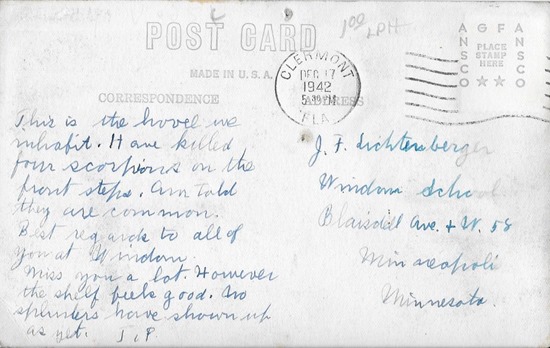 POST CARD
MADE IN U.S.A.
CORRESPONDENCE
ADDRESS
1.00
LPH
CLERMONT
DEC 17
1942
FLA.
AGFA
ANSCO
PLACE
STAMP
HERE
ANSCO
This is the hovel we
inhabit. Have killed
four scorpions on the
front steps. Am told
they are common.
Best regards to all of
you at Windom.
Miss you a lot. However
the shelf feels good. No
splinters have shown up
as yet. J.P.
J. F. Lichtenberger
Windom School
Blaisdell Ave. + W. 58
Minneapolis
Minnesota.